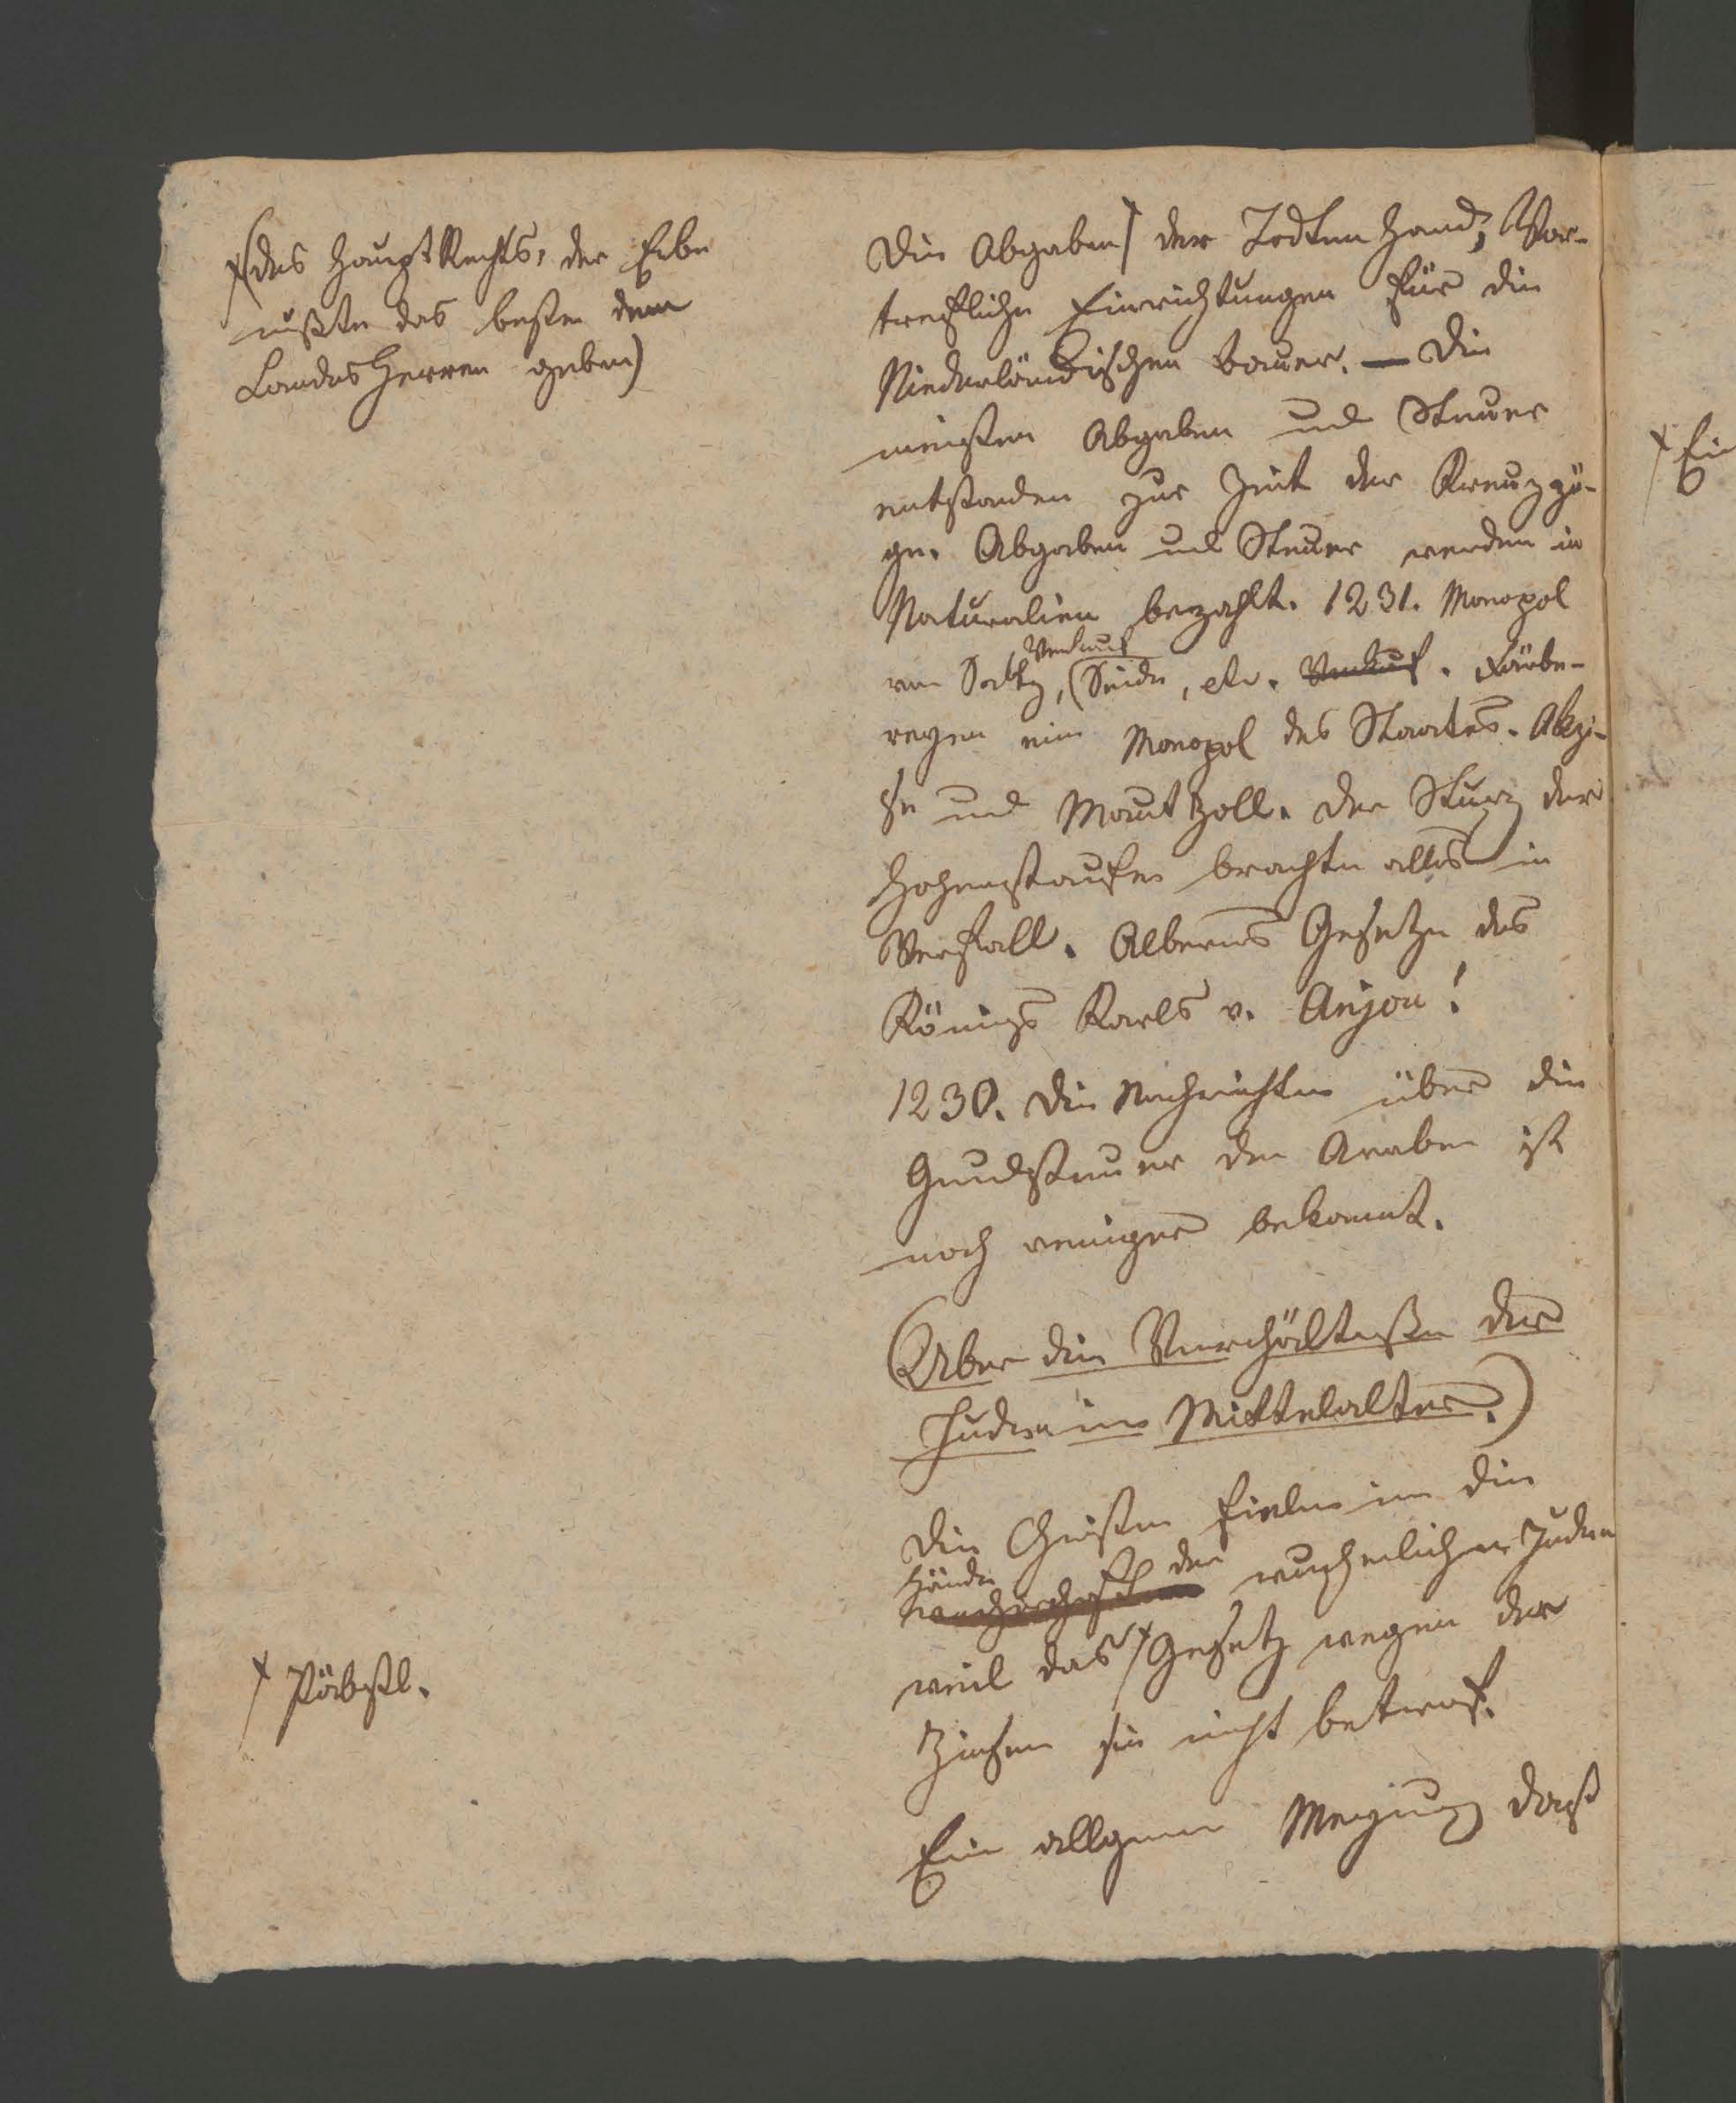 x (des HauptRechts, der Erbe
mußte das beste dem
LandesHerren geben)
Die Abgaben x der Todten Hand; Vor-
trefliche Einrichtungen für die
Niederländischen Bauer. — Die
meisten Abgaben und Steuer
entstanden zur Zeit der Kreuzzü-
ge. Abgaben und Steuer werden in
Naturalien bezahlt. 1231. Monopol
von Saltz, Verkauf (Seide, etc. Verkauf. Färbe-
reyen ein Monopol des Staates. Akzi-
se und Mautzoll. Der Sturz der
Hohenstaufen brachte alles in
Verfall. Albernes Gesetze des
Königs Karls v. Anjou!
1230. Die Nachrichten über die
Grundsteuer der Araber ist
noch weniger bekannt.
(Über die Verhältnisse der
Juden im Mittelalter.)
Die Christen fielen in die
Hände der wucherlichen Juden
weil das x Gesetz wegen der
Zinsen sie nicht betraf.
x Päbstl.
Ein allgemein Meynung daß
x Ein